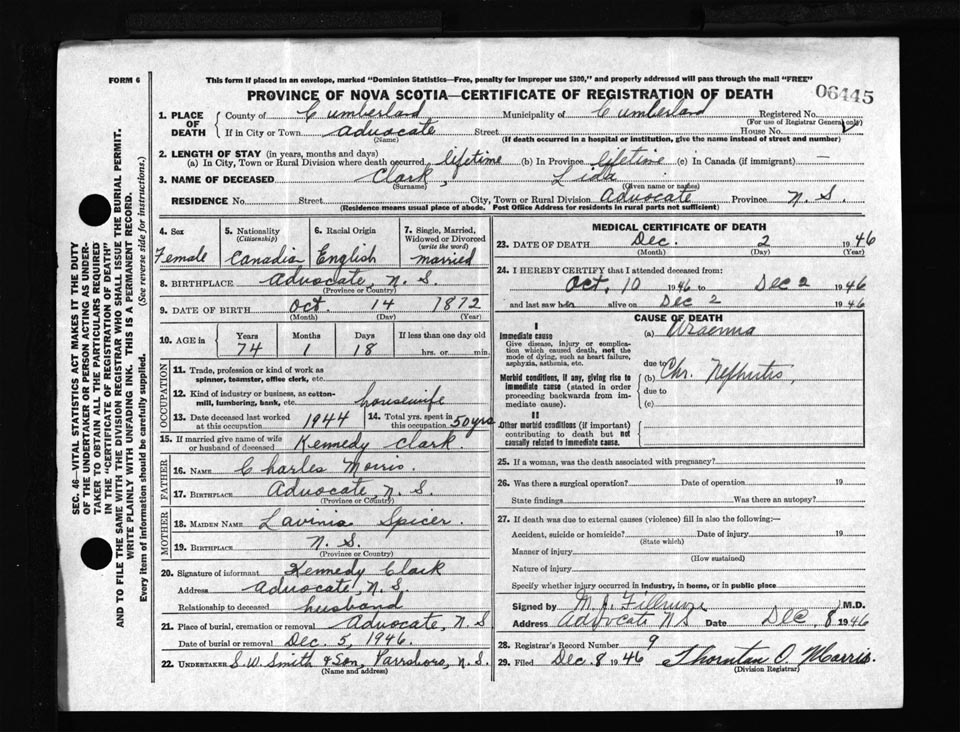 FORM 6
This form if placed in an envelope, marked "Dominion Statistics—Free, penalty for improper use $300," and properly addressed will pass through the mail "FREE"
PROVINCE OF NOVA SCOTIA—CERTIFICATE OF REGISTRATION OF DEATH
06445
1. PLACE OF DEATH
County of Cumberland Municipality of Cumberland Registered No.
(For use of Registrar General only)
If in City or Town Advocate Street House No.
(Name) (If death occurred in a hospital or institution, give the name instead of street and number)
2. LENGTH OF STAY (in years, months and days)
(a) In City, Town or Rural Division where death occurred lifetime (b) In Province lifetime (c) In Canada (if immigrant) —
3. NAME OF DECEASED Clark, Lida
(Surname) (Given name or names)
RESIDENCE No. Street City, Town or Rural Division Advocate Province N. S.
(Residence means usual place of abode. Post Office Address for residents in rural parts not sufficient)
4. Sex Female
5. Nationality (Citizenship) Canadian
6. Racial Origin English
7. Single, Married, Widowed or Divorced (write the word) married
8. BIRTHPLACE Advocate N. S.
(Province or Country)
9. DATE OF BIRTH Oct. 14 1872
(Month) (Day) (Year)
10. AGE in Years Months Days If less than one day old
74 1 18 hrs. or min.
OCCUPATION
11. Trade, profession or kind of work as spinner, teamster, office clerk, etc.
12. Kind of industry or business, as cotton-mill, lumbering, bank, etc. housewife
13. Date deceased last worked at this occupation 1944
14. Total yrs. spent in this occupation 50 yrs
15. If married give name of wife or husband of deceased Kennedy Clark
FATHER
16. NAME Charles Morris
17. BIRTHPLACE Advocate, N. S.
(Province or Country)
MOTHER
18. MAIDEN NAME Lavinia Spicer
19. BIRTHPLACE N. S.
(Province or Country)
20. Signature of informant Kennedy Clark
Address Advocate, N. S.
Relationship to deceased husband
21. Place of burial, cremation or removal Advocate, N. S
Date of burial or removal Dec. 5, 1946.
22. UNDERTAKER S. W. Smith & Son, Parrsboro, N. S.
(Name and address)
MEDICAL CERTIFICATE OF DEATH
23. DATE OF DEATH Dec. 2 1946
(Month) (Day) (Year)
24. I HEREBY CERTIFY that I attended deceased from:
Oct, 10 1946 to Dec 2 1946
and last saw her alive on Dec 2 1946
CAUSE OF DEATH
I
Immediate cause
Give disease, injury or complication which caused death, not the mode of dying, such as heart failure, asphyxia, asthenia, etc.
(a) Uraemia
due to
Morbid conditions, if any, giving rise to immediate cause (stated in order proceeding backwards from immediate cause).
(b) Chr. Nephritis,
due to
(c)
II
Other morbid conditions (if important) contributing to death but not causally related to immediate cause.
25. If a woman, was the death associated with pregnancy?
26. Was there a surgical operation? Date of operation 19
State findings Was there an autopsy?
27. If death was due to external causes (violence) fill in also the following:—
Accident, suicide or homicide? Date of injury 19
(State which)
Manner of injury
(How sustained)
Nature of injury
Specify whether injury occurred in industry, in home, or in public place
Signed by M. J. Fillmore M.D.
Address Advocate NS Date Dec. 8 1946
28. Registrar's Record Number 9
29. Filed Dec. 8 1946 Thornton O. Morris.
(Division Registrar)
SEC. 46—VITAL STATISTICS ACT MAKES IT THE DUTY
OF THE UNDERTAKER OR PERSON ACTING AS UNDERTAKER TO OBTAIN ALL THE PARTICULARS REQUIRED
IN THE "CERTIFICATE OF REGISTRATION OF DEATH"
AND TO FILE THE SAME WITH THE DIVISION REGISTRAR WHO SHALL ISSUE THE BURIAL PERMIT.
WRITE PLAINLY WITH UNFADING INK. THIS IS A PERMANENT RECORD.
Every item of information should be carefully supplied. (See reverse side for instructions.)